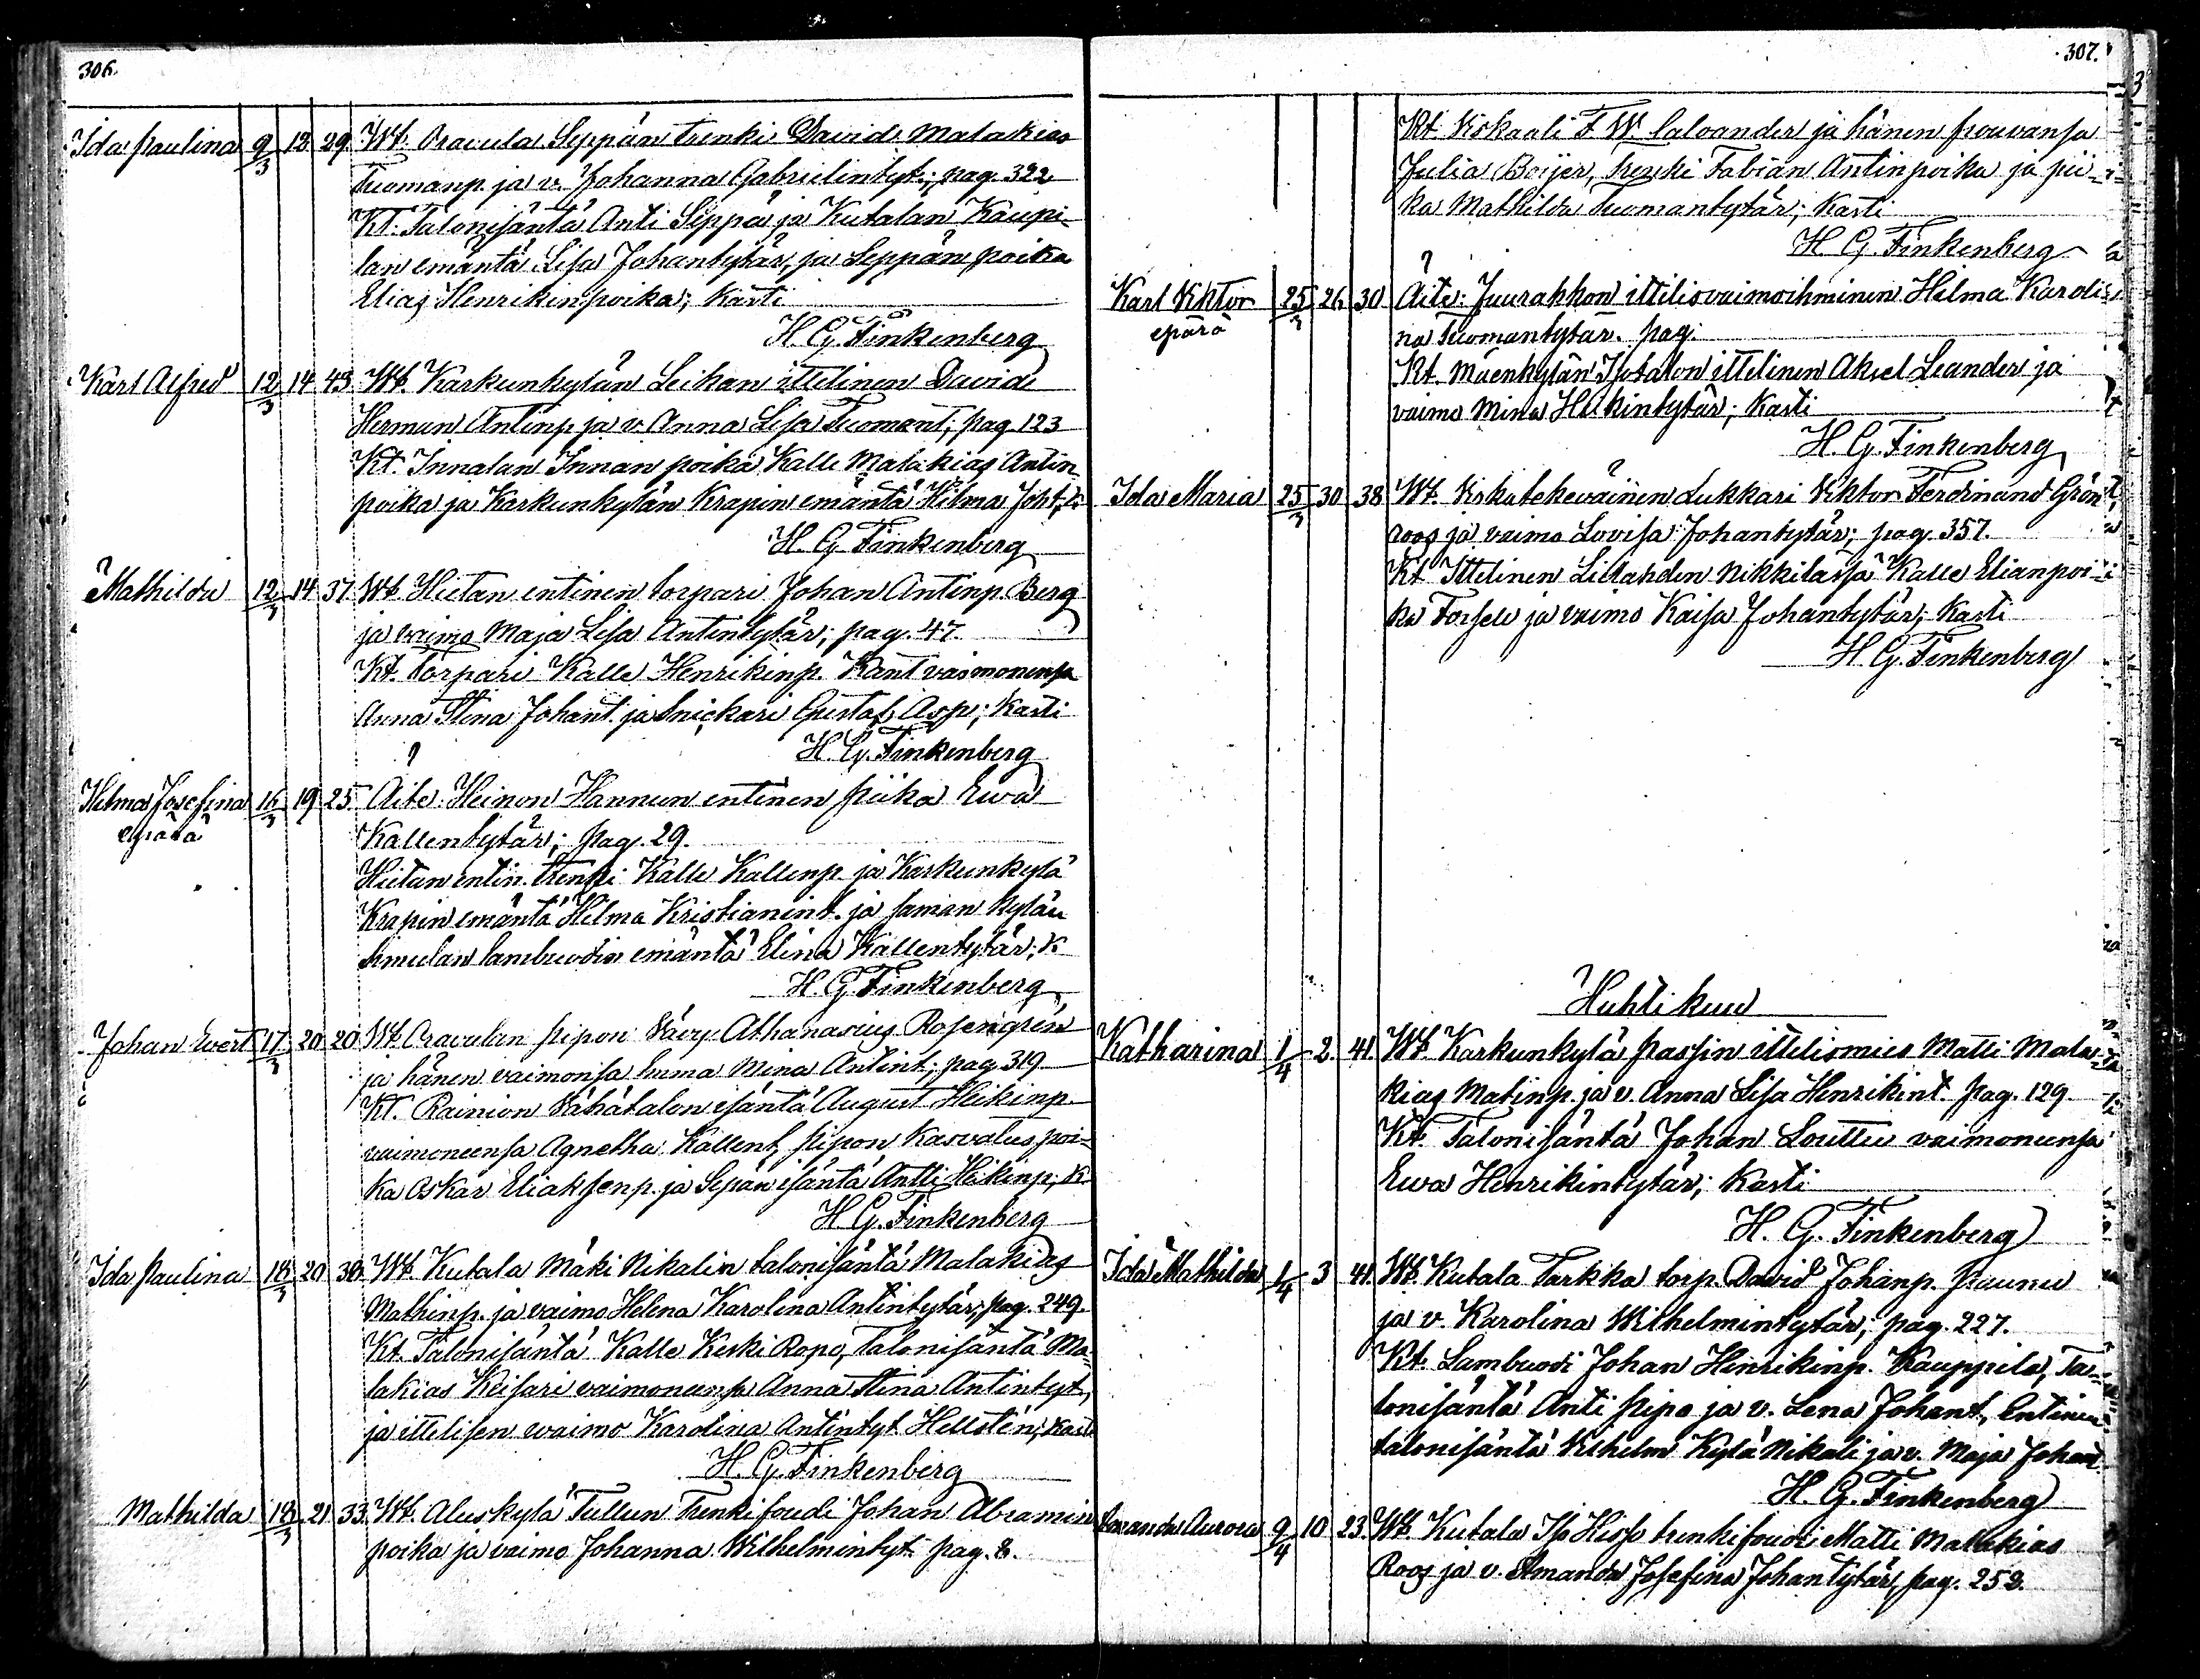 306.
Ida Paulina 9/3 13 29 Wt. Oravula Seppän trenki David Malakias
Tuomanp. ja v. Johanna Gabrielintyt.; pag. 322
Kt. Talonisäntä Anti Seppä ja Kutalan Kaupi-
lan emäntä Lisa Johantytär, ja Seppän poika
Elias Henrikinpoika; Kasti
H. G. Finkenberg
Karl Alfred 12/3 14 43 Wt. Karkunkylän Leikan ittelinen David
Herman Antinp. ja v. Anna Lisa Tuomant; pag. 123
Kt. Innalan Innan poika Kalle Malakias Antin
poika ja Karkunkylän Krapin emäntä Hilma Joht;
H. G. Finkenberg
Mathilda 12/3 14 37 Wt. Hietan entinen torpari Johan Antinp. Berg
ja vaimo Maja Lisa Antintytär; pag. 47.
Kt. torpari Kalle Henrikinp. Kant vaimonensa
Anna Stina Johant. ja Snickari Gustaf Asp; Kasti
H. G. Finkenberg
Hilma Josefina 16/3 19 25 Äite: Heinon Hannun entinen piika Ewa
epärä
Kallentytär; pag. 29.
Hietan entin. trenki Kalle Kallenp. ja Karkunkylä
Krapin emäntä Hilma Kristianint. ja saman kylän
Simulan lambuodin emäntä Elina Kallentytär; K
H. G. Finkenberg
Johan Evert 17/3 20 20 Wt. Oravulan Pipon Vävy Athanasius Rosengrén
ja hänen vaimonsa Emma Mina Antint; pag. 319
Kt. Rainion Vähätalon isäntä August Heikinp.
vaimoneensa Agnetha Kallent, Pipon Kasvatus poi-
ka Oskar Eliaksenp. ja Sepän isäntä Antti Heikinp; K
H. G. Finkenberg
Ida Paulina 18/3 20 38 Wt. Kutala Mäki Nikalin talonisäntä Malakias
Mathinp. ja vaimo Helena Karolina Antintytär; pag. 249.
Kt. Talonisäntä Kalle Keski Ropo, Talonisäntä Ma-
lakias Keisari vaimoneensa Anna Stina Antintyt,
ja ittelisen vaimo Karolina Antintyt Hellstén; Kasti
H. G. Finkenberg
Mathilda 18/3 21 33 Wt. Aluskylä Tullun Trenkifoudi Johan Abramin
poika ja vaimo Johanna Wilhelmintyt. pag. 8.
307.
Kt. Viskaali F. W. Caloander ja hänen frouvansa
Julia Boijer, trenki Fabian Antinpoika ja pii-
ka Mathilda Tuomantytär; Kasti
H. G. Finkenberg
Karl Viktor 25/3 26 30 Äite: Juurakkon ittelisvaimoihminen Hilma Karoli-
epärä
na Tuomantytar. pag.
Kt. Mäenkylän Isotalon ittelinen Aksel Leander ja
vaimo Mina Heikintytär; Kasti
H. G. Finkenberg
Ida Maria 25/3 30 38 Wt. Virkatekeväinen Lukkari Viktor Ferdinand Grön-
roos ja vaimo Lovisa Johantytär; pag. 357.
Kt. Ittelinen Liellahden Nikkilassa Kalle Elianpoi-
ka Forsell ja vaimo Kaisa Johantytär; Kasti
H. G. Finkenberg
Huhtikuu
Katharina 1/4 2 41 Wt. Karkunkylä Passin ittelismies Matti Mala-
kias Matinp. ja v. Anna Lisa Henrikint. pag. 129
Kt. Talonisäntä Johan Louttu vaimoneensa
Ewa Henrikintytär; Kasti
H. G. Finkenberg
Ida Mathilda 1/4 3 41 Wt. Kutala Tarkka torp. David Johanp. Paunu
ja v. Karolina Wilhelmintytär; pag. 227.
Kt. Lambuodi Johan Henrikinp. Kauppila, Ta-
lonisäntä Anti Pipo ja v. Lena Johant, Entinen
talonisäntä Vilhelm Kylä Nikali ja v. Maja Johant
H. G. Finkenberg
Amanda Aurora 9/4 10 23 Wt. Kutala Iso Hiisso trenkifoudi Matti Malakias
Roos ja v. Amanda Josefina Johantytär, pag. 252.